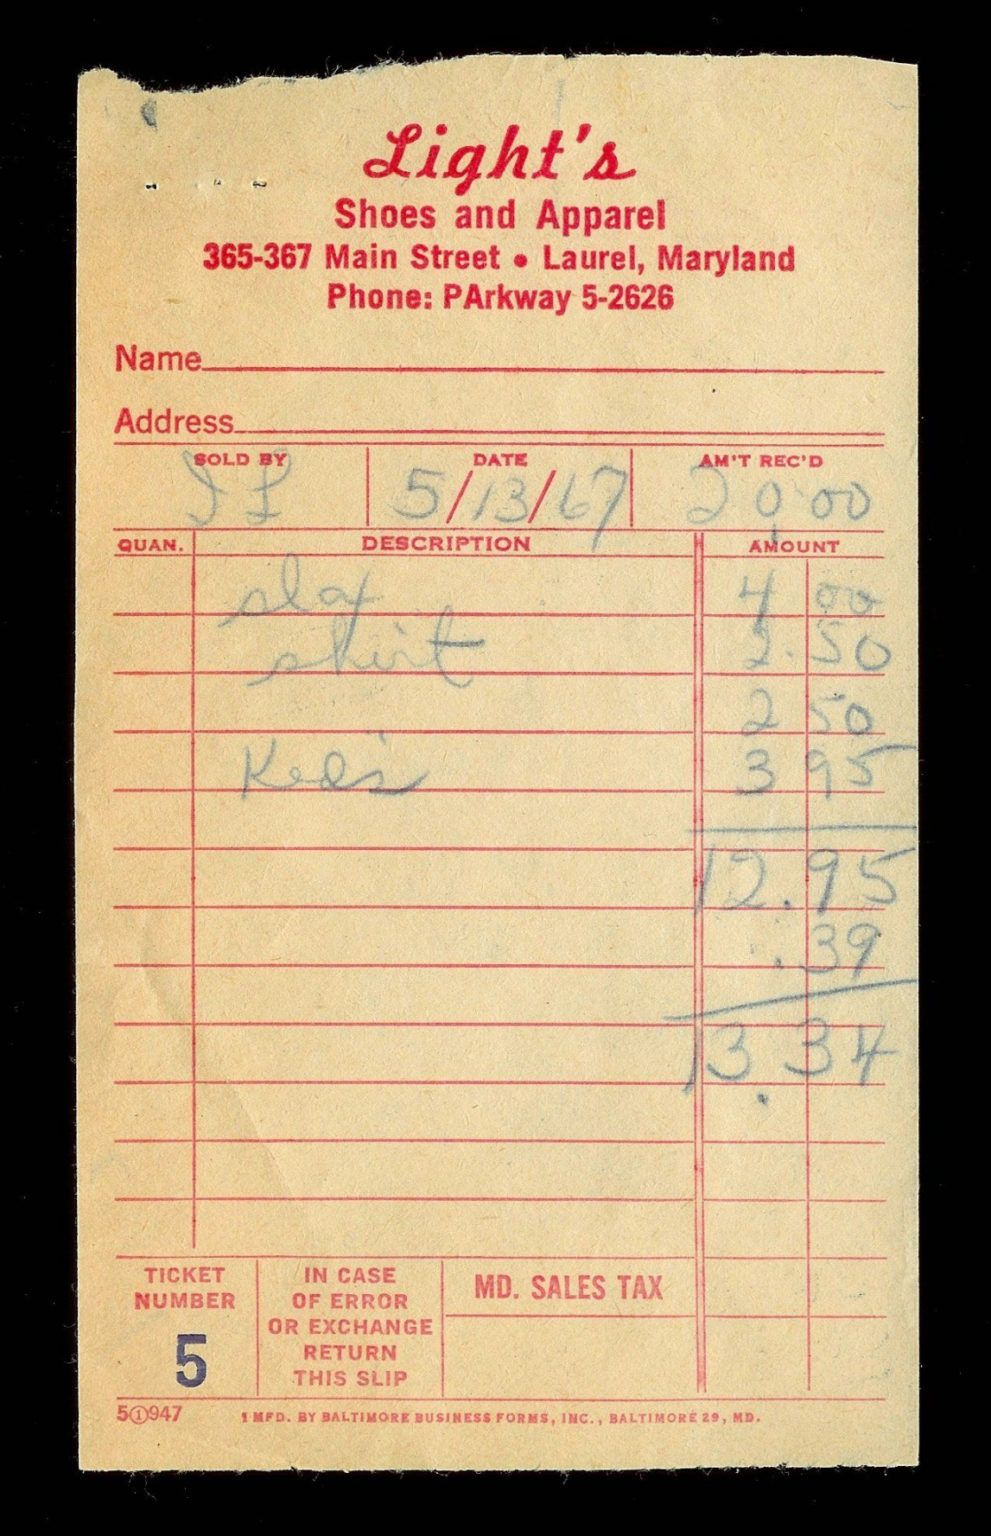 Light's
Shoes and Apparel
365-367 Main Street • Laurel, Maryland
Phone: PArkway 5-2626
Name
Address
SOLD BY DATE AM'T REC'D
5/13/67 20.00
QUAN. DESCRIPTION AMOUNT
slax 4 00
shirt 2.50
2 50
Keds 3 95
12.95
.39
13.34
TICKET NUMBER
5
IN CASE
OF ERROR
OR EXCHANGE
RETURN
THIS SLIP
MD. SALES TAX
5①947 MFD. BY BALTIMORE BUSINESS FORMS, INC., BALTIMORE 29, MD.